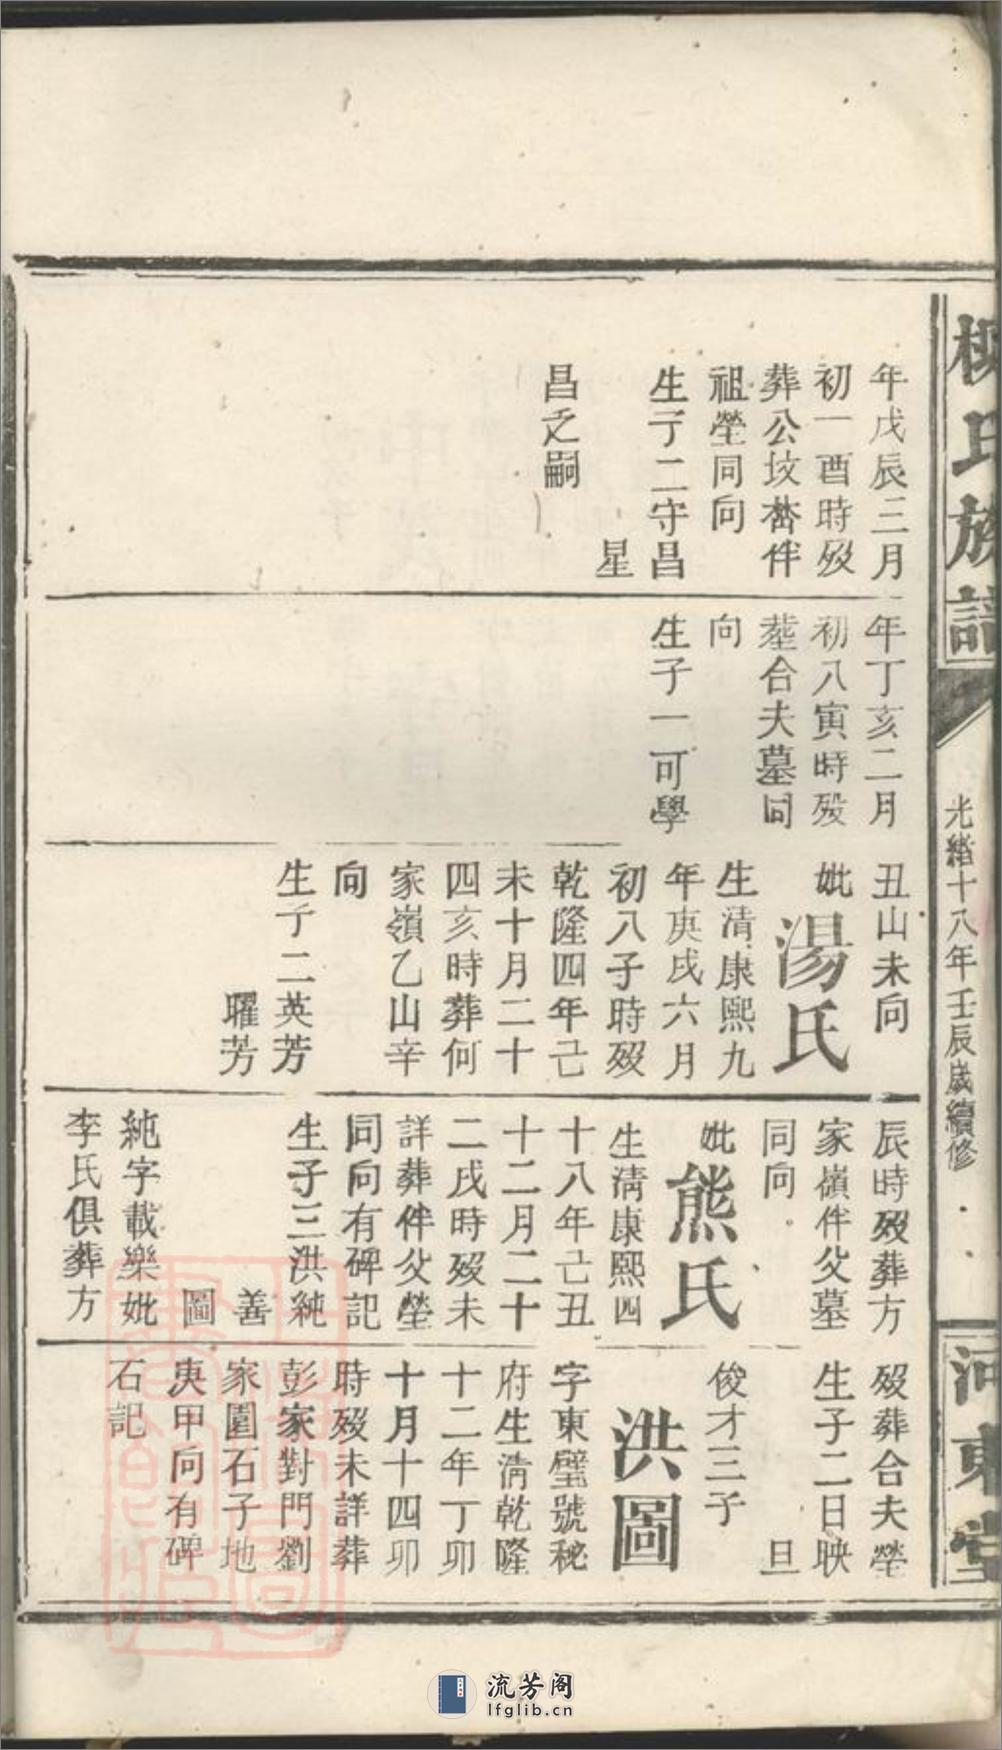 柳氏族譜
光緒十八年壬辰歲續修
河東堂
年戊辰三月
初一酉時歿
葬公坟峇伴
祖塋同向
生子二守昌
星
昌乏嗣
年丁亥二月
初八寅時歿
塟合夫墓同
向
生子一可學
丑山未向
妣湯氏
生清康熙九
年庚戌六月
初八子時歿
乾隆四年己
未十月二十
四亥時葬何
家嶺乙山辛
向
生子二英芳
曜芳
辰時歿葬方
家嶺伴父墓
同向
妣熊氏
生清康熙四
十八年己丑
十二月二十
二戌時歿未
詳葬伴父塋
同向有碑記
生子三洪純
善
圖
純字載樂妣
李氏俱葬方
歿葬合夫塋
生子二日映
旦
俊才三子
洪圖
字東璧號秘
府生清乾隆
十二年丁卯
十月十四卯
時歿未詳葬
彭家對門劉
家園石子地
庚甲向有碑
石記
流芳阁
lfglib.cn